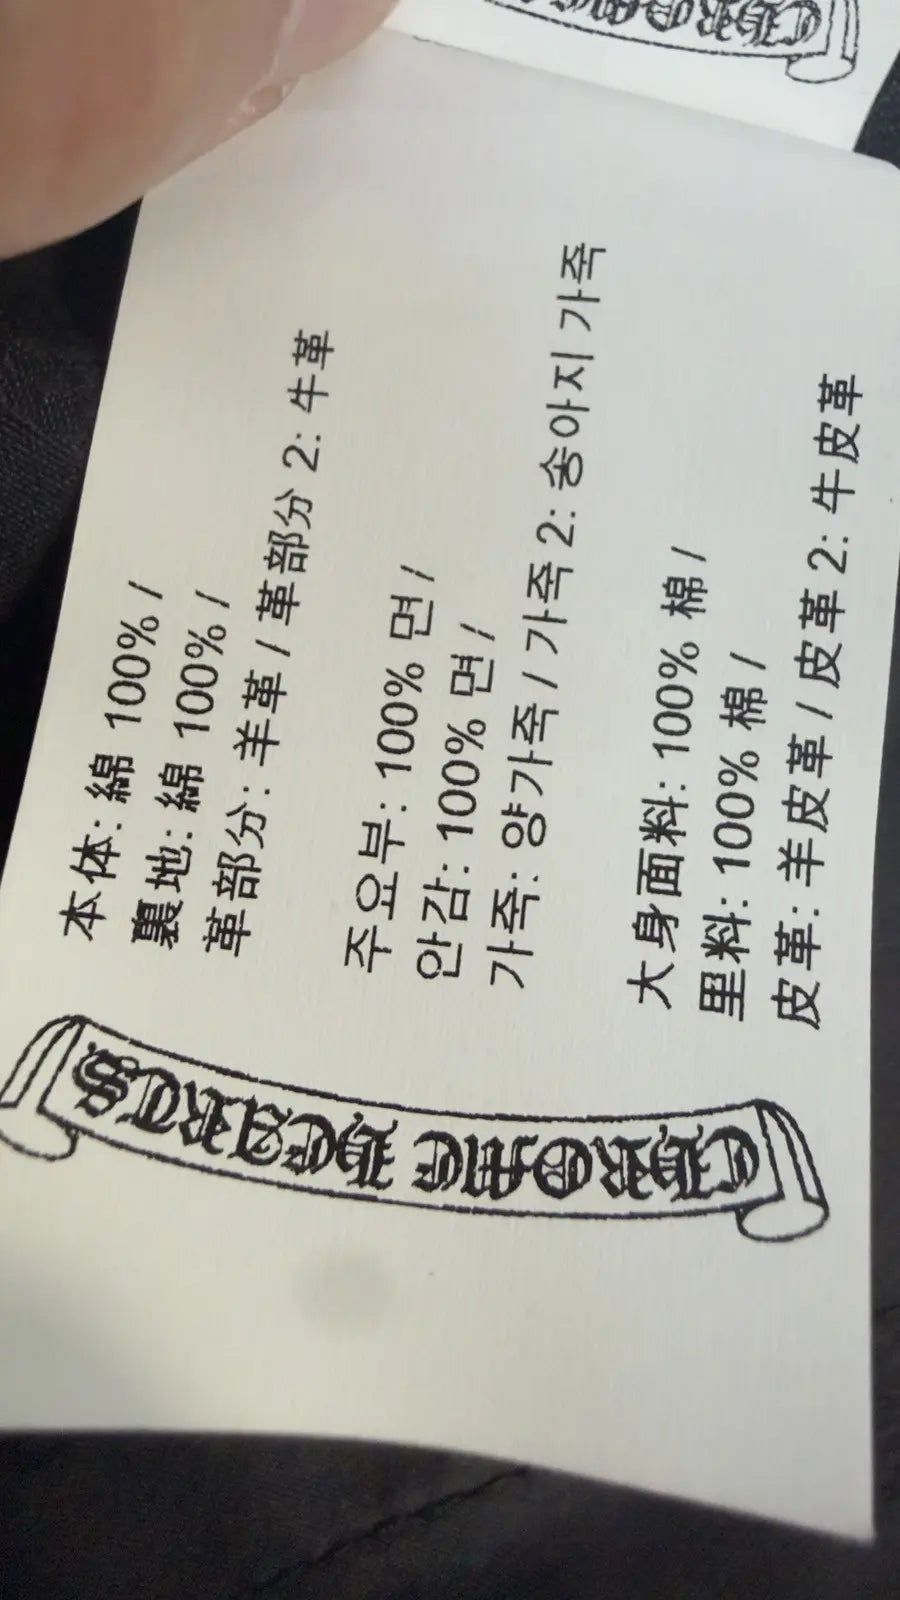 本体: 綿 100% /
裏地: 綿 100% /
革部分: 羊革 / 革部分 2: 牛革
주요부: 100% 면 /
안감: 100% 면 /
가죽: 양가죽 / 가죽 2: 송아지 가죽
大身面料: 100% 棉 /
里料: 100% 棉 /
皮革: 羊皮革 / 皮革 2: 牛皮革
CHROME HEARTS
CHROME